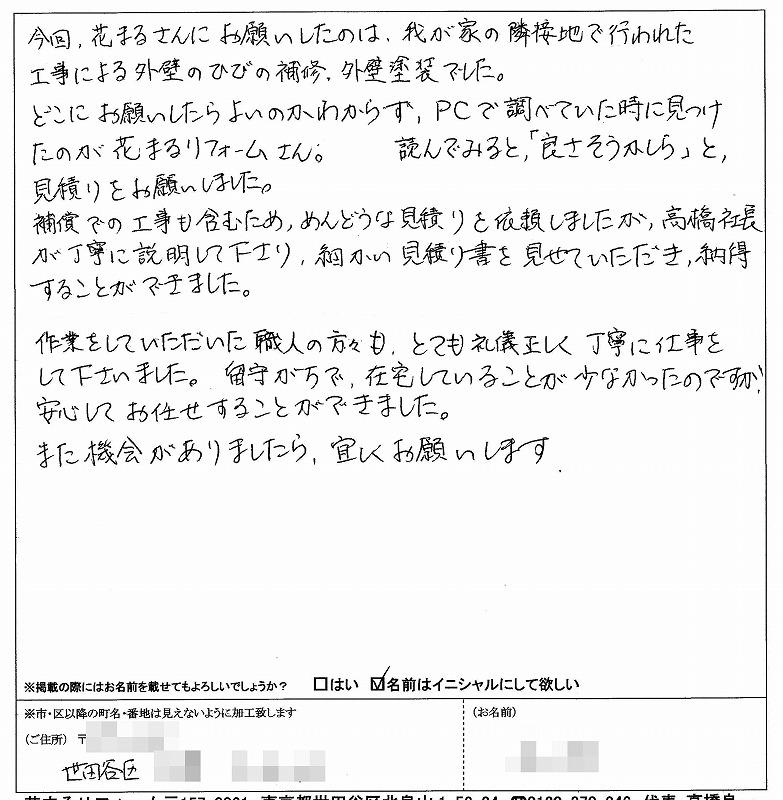 今回、花まるさんにお願いしたのは、我が家の隣接地で行われた
工事による外壁のひびの補修、外壁塗装でした。
どこにお願いしたらよいのかわからず、PCで調べていた時に見つけ
たのが花まるリフォームさん。 読んでみると、「良さそうかしら」と、
見積りをお願いしました。
補償での工事も含むため、めんどうな見積りを依頼しましたが、高橋社長
が丁寧に説明して下さり、細かい見積り書を見せていただき、納得
することができました。
作業をしていただいた職人の方々も、とても礼儀正しく丁寧に仕事を
して下さいました。留守がちで、在宅していることが少なかったのですが、
安心してお任せすることができました。
また機会がありましたら、宜しくお願いします
※掲載の際にはお名前を載せてもよろしいでしょうか? □はい ☑名前はイニシャルにして欲しい
※市・区以降の町名・番地は見えないように加工致します
(お名前)
(ご住所) 〒
世田谷区